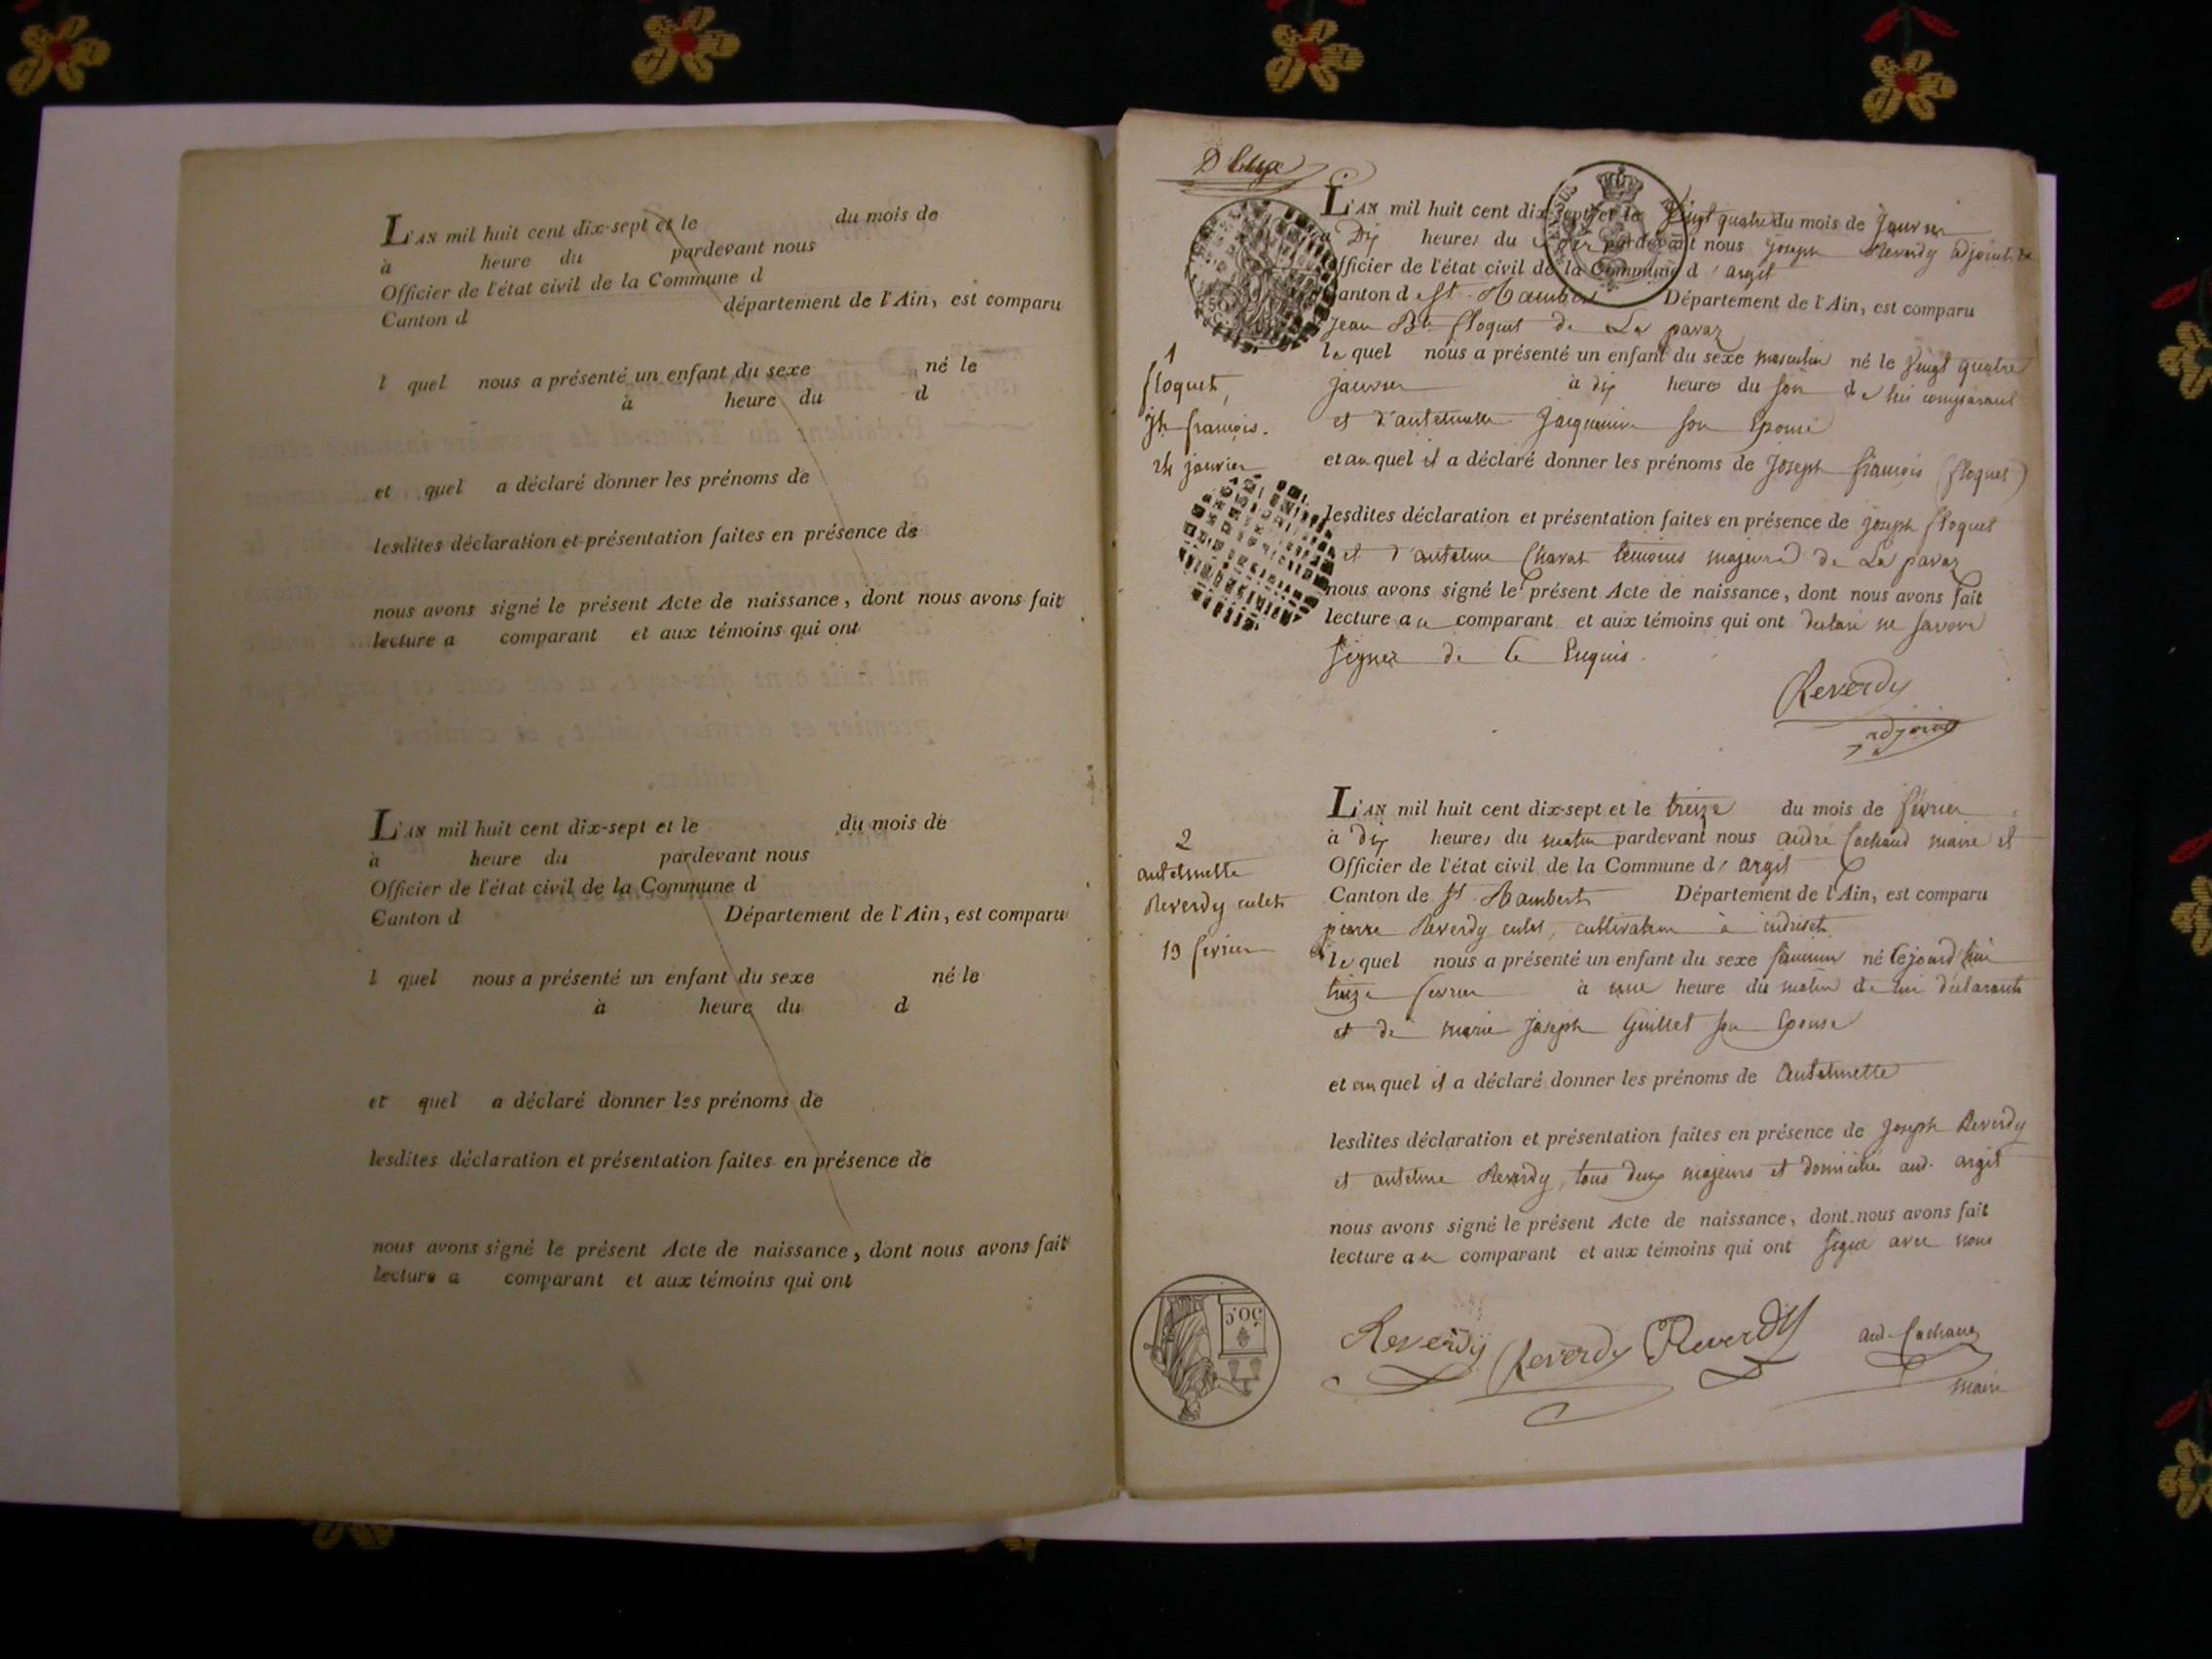 L'AN mil huit cent dix-sept et le du mois de
à heure du pardevant nous
Officier de l'état civil de la Commune d
Canton d département de l'Ain, est comparu
l quel nous a présenté un enfant du sexe né le
à heure du d
et quel a déclaré donner les prénoms de
lesdites déclaration et présentation faites en présence de
nous avons signé le présent Acte de naissance, dont nous avons fait
lecture a comparant et aux témoins qui ont
L'AN mil huit cent dix-sept et le du mois de
à heure du pardevant nous
Officier de l'état civil de la Commune d
Canton d Département de l'Ain, est comparu
l quel nous a présenté un enfant du sexe né le
à heure du d
et quel a déclaré donner les prénoms de
lesdites déclaration et présentation faites en présence de
nous avons signé le présent Acte de naissance, dont nous avons fait
lecture a comparant et aux témoins qui ont
L'AN mil huit cent dix-sept et le vingt quatre du mois de janvier
à Dix heures du pardevant nous joseph Reverdy adjoint
Officier de l'état civil de la Commune d'argit
Canton de St Rambert Département de l'Ain, est comparu
jean Bte floquet de La pavaz
1
floquet,
jh françois.
24 janvier
le quel nous a présenté un enfant du sexe masculin né le vingt quatre
janvier à dix heures du soir de lui comparant
et d'antelmette jacquemin son Epouse
et au quel il a déclaré donner les prénoms de joseph françois (floquet)
lesdites déclaration et présentation faites en présence de joseph floquet
et d'antelme Charat temoins majeurs de La pavaz
nous avons signé le présent Acte de naissance, dont nous avons fait
lecture au comparant et aux témoins qui ont declaré ne savoir
signer de ce Enquis.
Reverdy
adjoint
2
antelmette
Reverdy culet
13 fevrier
L'AN mil huit cent dix-sept et le treize du mois de fevrier
à dix heures du matin pardevant nous andré Cochand maire et
Officier de l'état civil de la Commune d'argit
Canton de St Rambert Département de l'Ain, est comparu
pierre Reverdy culet, cultivateur à
le quel nous a présenté un enfant du sexe feminin né cejourd'hui
treize fevrier à une heure du matin de lui déclarant
et de marie joseph Guillet son Epouse
et au quel il a déclaré donner les prénoms de antelmette
lesdites déclaration et présentation faites en présence de joseph Reverdy
et antelme Reverdy, tous deux majeurs et domiciliés aud. argit
nous avons signé le présent Acte de naissance, dont nous avons fait
lecture au comparant et aux témoins qui ont signé avec nous
50c
Reverdy Reverdy Reverdy and. Cochand
maire